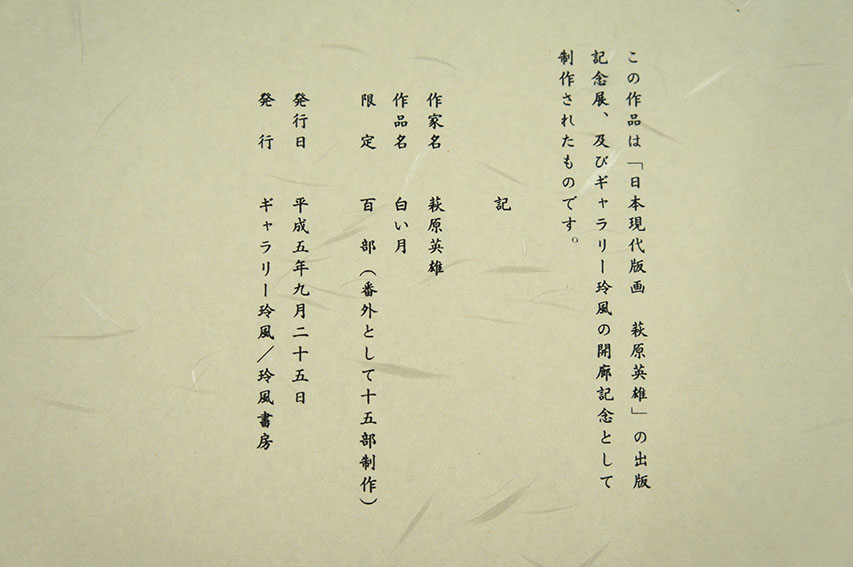 この作品は「日本現代版画　萩原英雄」の出版
記念展、及びギャラリー玲風の開廊記念として
制作されたものです。
記
作家名　萩原英雄
作品名　白い月
限　定　百　部（番外として十五部制作）
発行日　平成五年九月二十五日
発　行　ギャラリー玲風／玲風書房